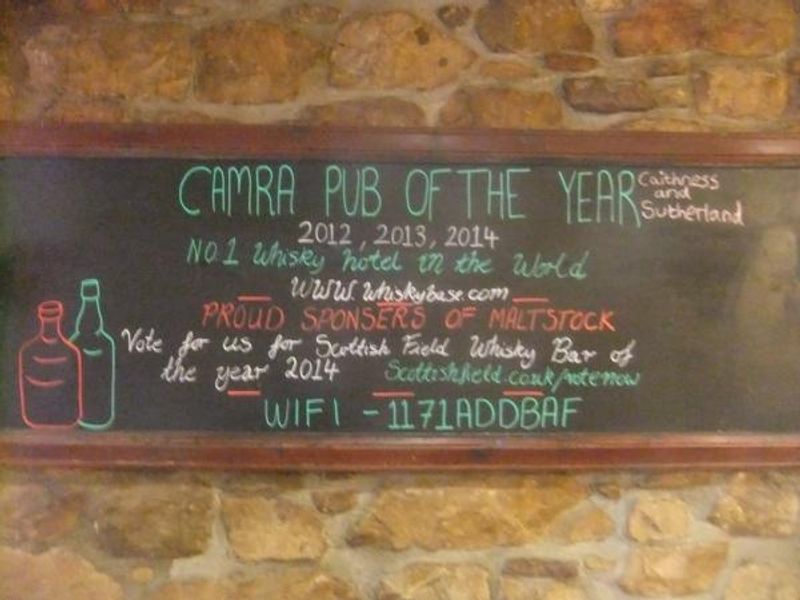 CAMRA PUB OF THE YEAR Caithness and Sutherland
2012, 2013, 2014
NO 1 Whisky hotel in the World
WWW.Whiskybase.com
PROUD SPONSERS OF MALTSTOCK
Vote for us for Scottish Field Whisky Bar of
the year 2014 Scottishfield.co.uk/votenow
WIFI - 1171ADDBAF